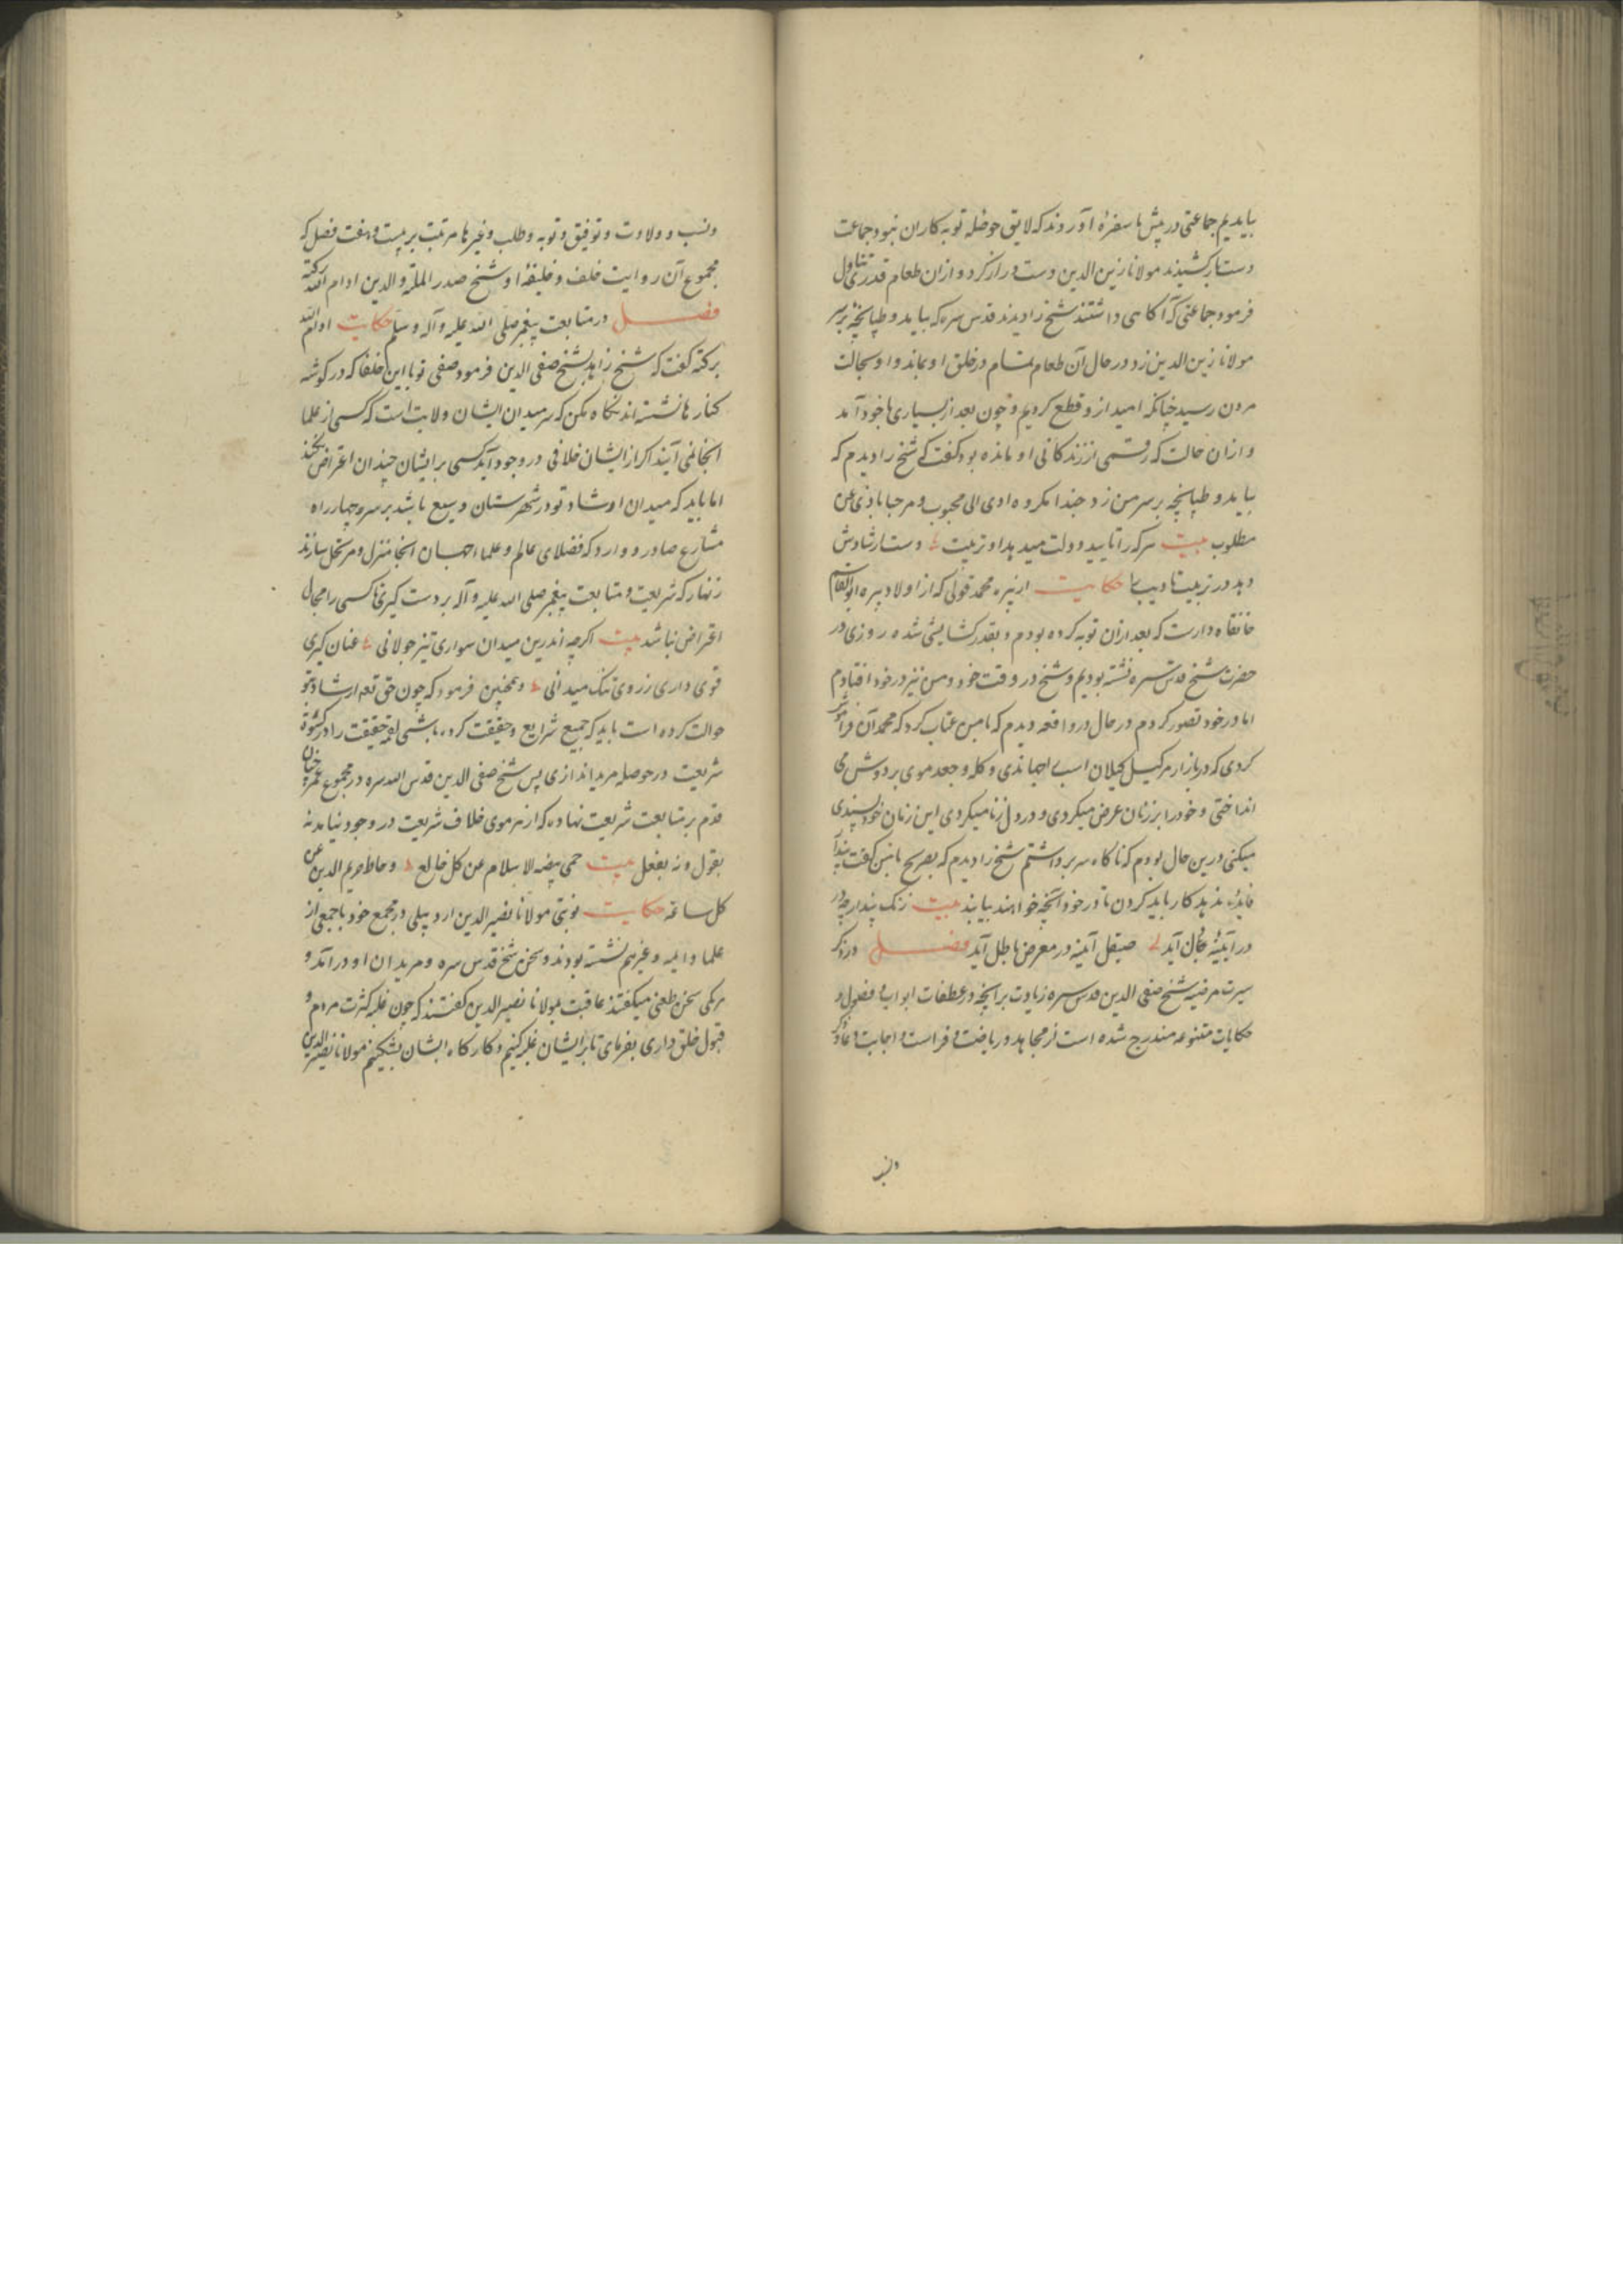 بیایدیم جماعتی در پیش ما سفرهٔ آوردند که لایق حوصله توبه کاران نبود جماعت
دست باز کشیدند مولانا زین الدین دست دراز کرد و ازان طعام قدری تناول
فرمود جماعتی که آگاهی داشتند شیخ را دیدند قدس سره که بیاید و طپانچهٔ بر سر
مولانا زین الدین زد در حال آن طعام تمام در خلق او بماند و او بحالت
مردن رسید چنانکه امید ازو قطع کردیم و چون بعد از بسیاری با خود آمد
و ازان حالت که رمقی از زندکانی او مانده بود گفت که شیخ را دیدم که
بیاید و طپانچه بر سر من زد حبذا مکروه ادی الی محبوب و مرحبا باذی عن
مطلوب بیت هرکه را تایید دولت میدهد او تربیت دست ارشادش
دهد در تربیت تادیبها حکایت از پیره محمد قولی که از اولاد پیره ابو القاسم
خانقاه دارست که بعد ازان توبه کرده بودم و بقدر کشایشی شده روزی در
حضرت شیخ قدس سره نشسته بودیم و شیخ در وقت خود و من نیز در خود افتادم
اما در خود تصور کردم در حال در واقعه دیدم که با من عتاب کرد که محمد آن فراموش
کردی که در بازار هر کیل کیلان اسب میجهاندی و کله و جعد موی بر دوش می
انداختی و خود را بر زنان عرض میکردی و در دل زنا میکردی این زمان خود پسندی
میکنی درین حال بودم که ناکاه سر برداشتم شیخ را دیدم که بصریح با من گفت پندار
فایده ندهد کار باید کردن تا در خود آنچه خواهند بیابند بیت زنک پندار چو در
در آیینهٔ جان آید صیقل آینه در معرض باطل آید فصل در ذکر
سیرت مرضیه شیخ صفی الدین قدس سره زیادت بر آنچه در عطفات ابواب و فصول و
حکایات متنوعه مندرج شده است از مجاهده و ریاضت و فراست و اجابت دعا و ذکر
ونسب
ونسب و ولادت و توفیق و توبه و طلب و غیرها مرتب بر بیست و هفت فصل که
مجموع آن روایت خلف و خلیفهٔ او شیخ صدر الملة والدین ادام الله برکته
فصل در متابعت پیغمبر صلی الله علیه وآله وسلم حکایت ادام الله
برکته گفت که شیخ زاهد شیخ صفی الدین فرمود صفی تو با این خلفا که در کوشه
کنارها نشسته اند نکاه مکن که سر میدان ایشان ولایت است که کسی از علما
انجا نمی آیند اکر از ایشان خلافی در وجود آید کسی بر ایشان چندان اعتراض نکند
اما باید که میدان ارشاد تو در شهرستان وسیع باشد بر سر چهار راه
مشارع صادر و وارد که فضلای عالم و علماء جهان انجا منزل و مرتحل سازند
زنهار که شریعت و متابعت پیغمبر صلی الله علیه وآله بر دست کیری تا کسی را مجال
اعتراض نباشد بیت اکرچه اندرین میدان سواری تیز جولانی عنان کیری
قوی داری ز روی تنک میدانی وهمچنین فرمود که چون حق تعه ارشاد بتو
حوالت کرده است باید که جمیع شرایع و حقیقت کرده باشی لقمهٔ حقیقت را در کسوة
شریعت در حوصله مرید اندازی پس شیخ صفی الدین قدس الله سره در مجموع عمر چنان
قدم بر متابعت شریعت نهاده که از سر موی خلاف شریعت در وجود نیامد نه
بقول و نه بفعل بیت حمی بیضة الاسلام عن کل خالع وحاط حریم الدین عن
کل سارقه حکایت نوبتی مولانا نصیر الدین اردبیلی در مجمع خود با جمعی از
علما و ایمه و غیرهم نشسته بودند و سخن شیخ قدس سره و مریدان او در آمد و
هر یکی سخن طعنی میگفتند عاقبت بمولانا نصیر الدین گفتند که چون غلبه کثرت مردم و
قبول خلق داری بفرمای تا بر ایشان غلبه کنیم و کارکاه ایشان بشکنیم مولانا نصیر الدین